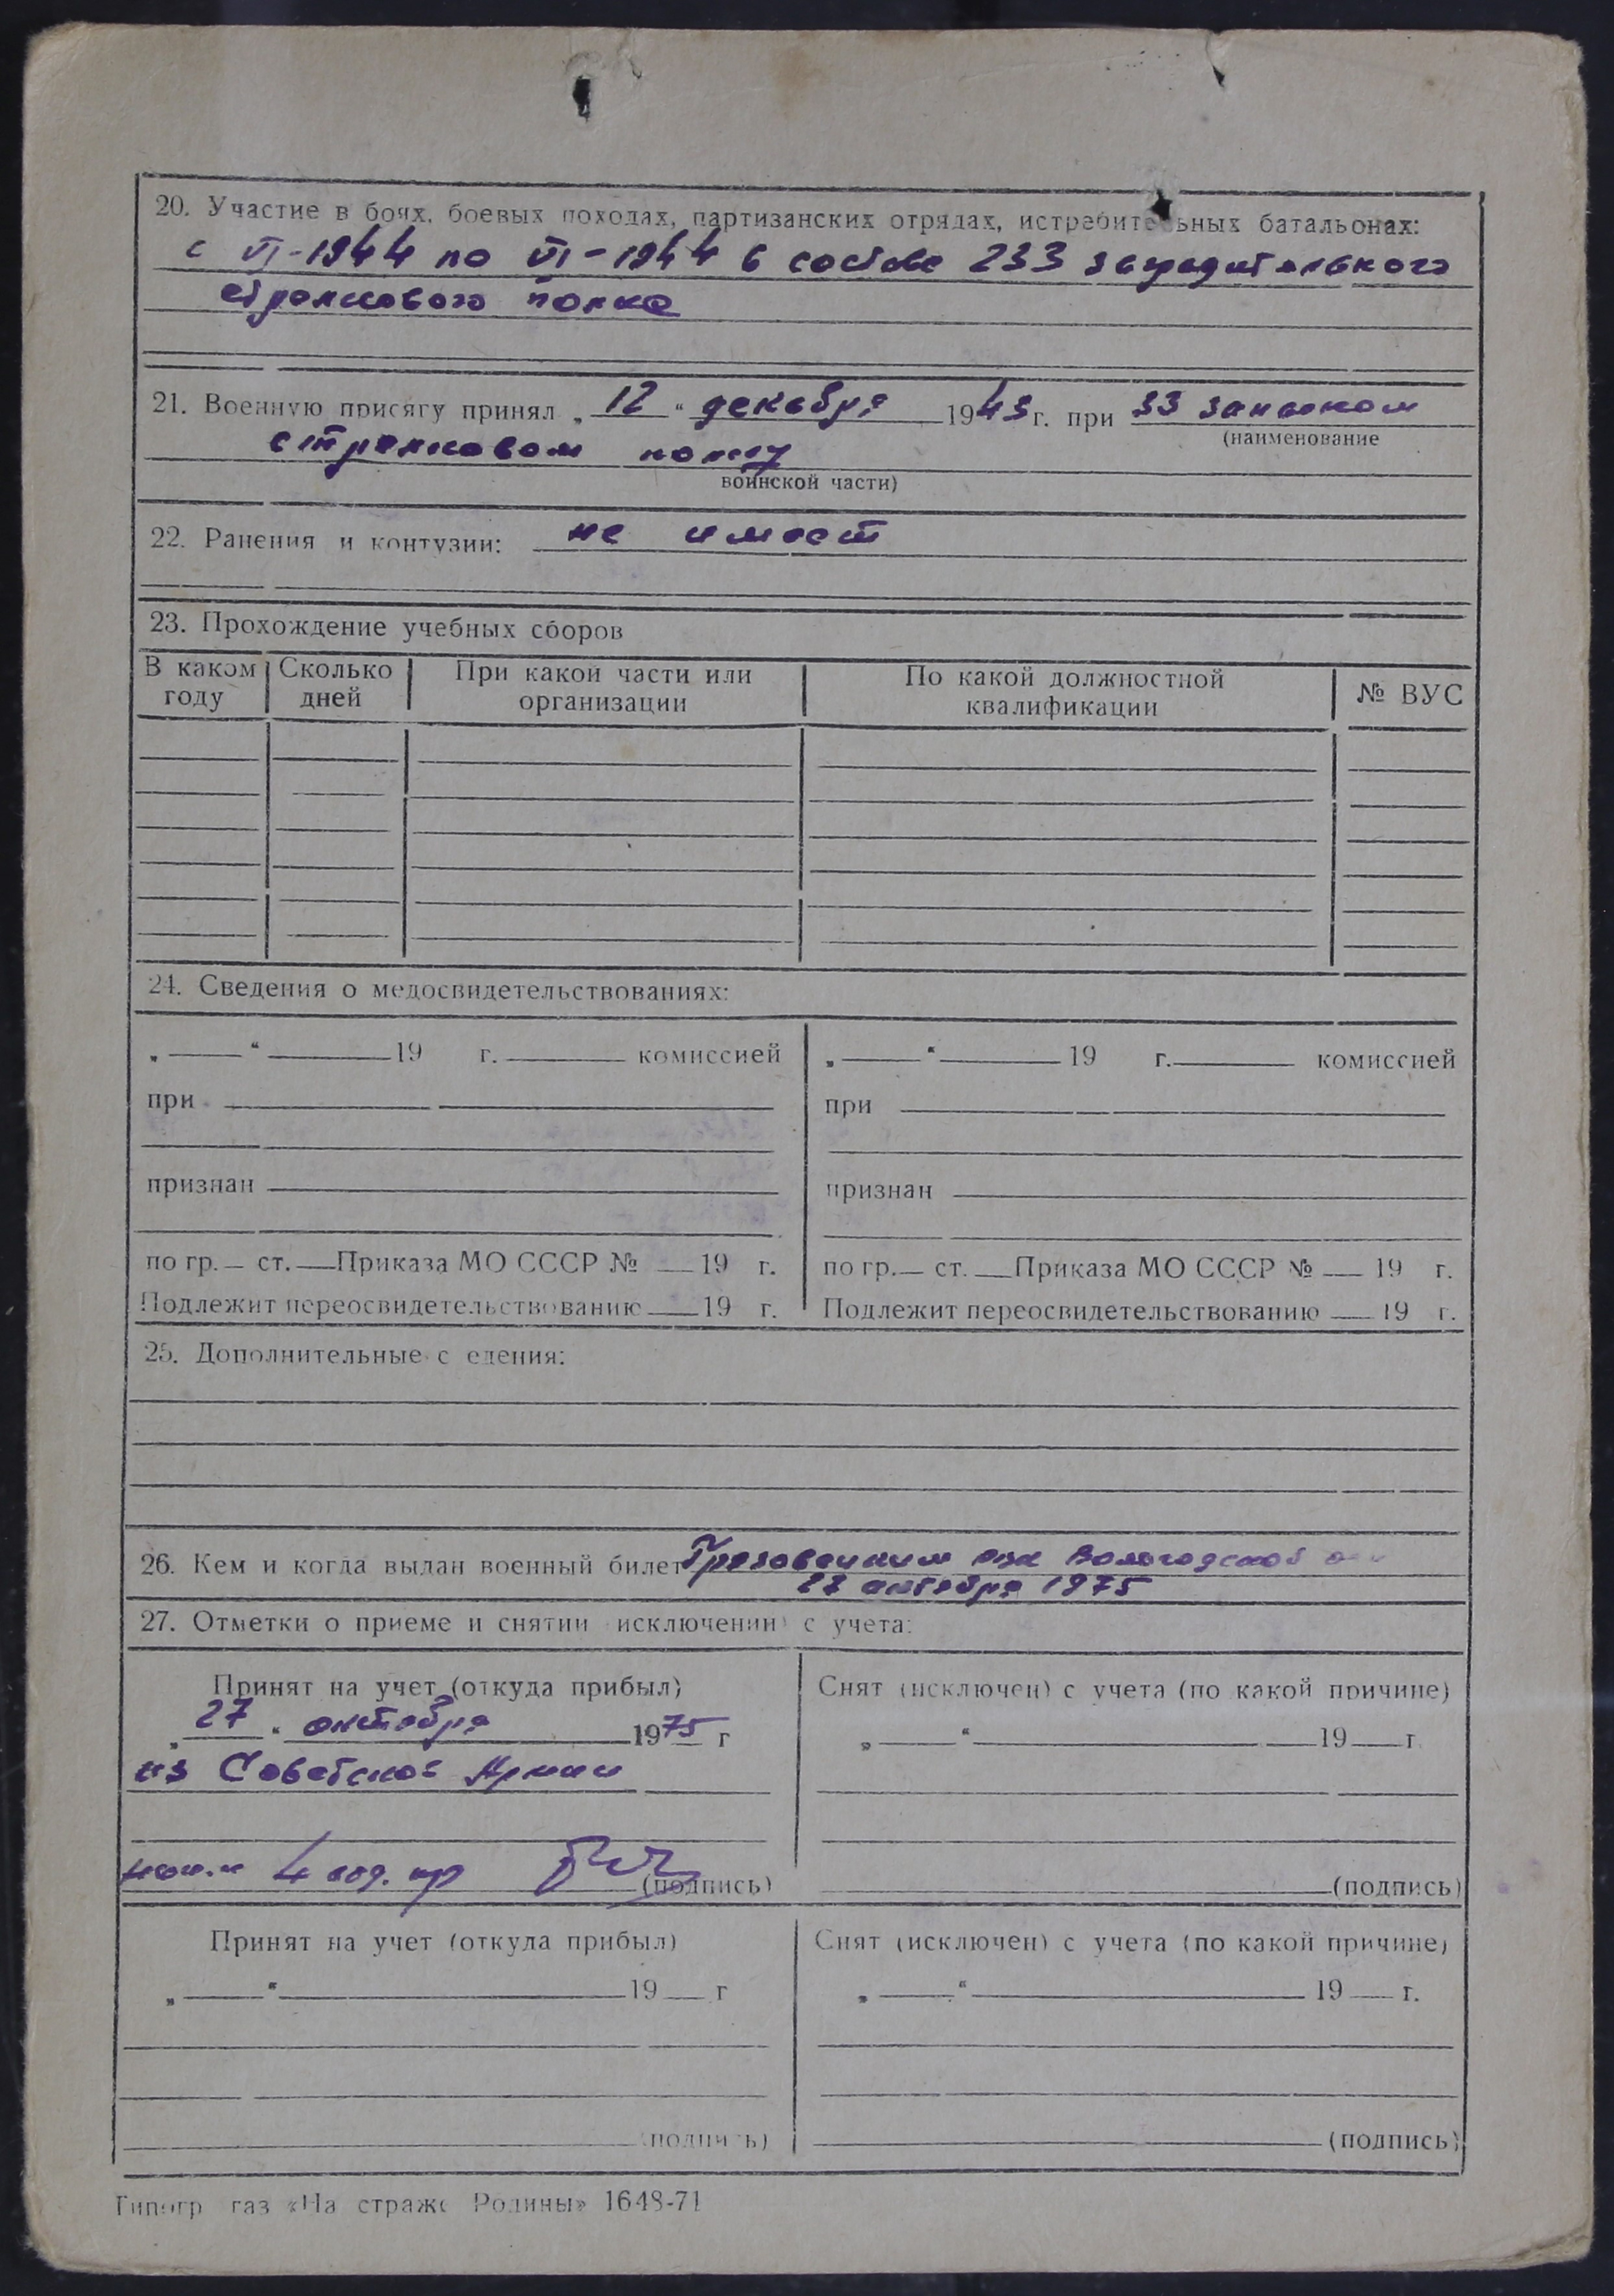 20. Участие в боях, боевых походах, партизанских отрядах, истребит ьных батальонах:
с VI-1944 по VI-1944 в составе 233 заградительного
стрелкового полка
21. Военную присягу принял „ 12 “ декабря 1943 г. при 33 запасном
(наименование
стрелковом полку
воинской части)
22. Ранения и контузии: не имеет
23. Прохождение учебных сборов
В каком году Сколько дней При какой части или организации По какой должностной квалификации № ВУС
24. Сведения о медосвидетельствованиях:
„ “ 19 г. комиссией „ “ 19 г. комиссией
при при
признан признан
по гр. ст. Приказа МО СССР № 19 г. по гр. ст. Приказа МО СССР № 19 г.
Подлежит переосвидетельствованию 19 г. Подлежит переосвидетельствованию 19 г.
25. Дополнительные с едения:
26. Кем и когда выдан военный билет Грязовецким рвк Вологодской
27 октября 1975
27. Отметки о приеме и снятии исключении) с учета:
Принят на учет (откуда прибыл) Снят (исключен) с учета (по какой причине)
„ 27 “ октября 1975 г „ “ 19 г.
из Советской Армии
4 (подпись) (подпись)
Принят на учет (откуда прибыл) Снят (исключен) с учета (по какой причине)
„ “ 19 г „ “ 19 г.
(подпись) (подпись)
Типогр газ «На страже Родины» 1648-71